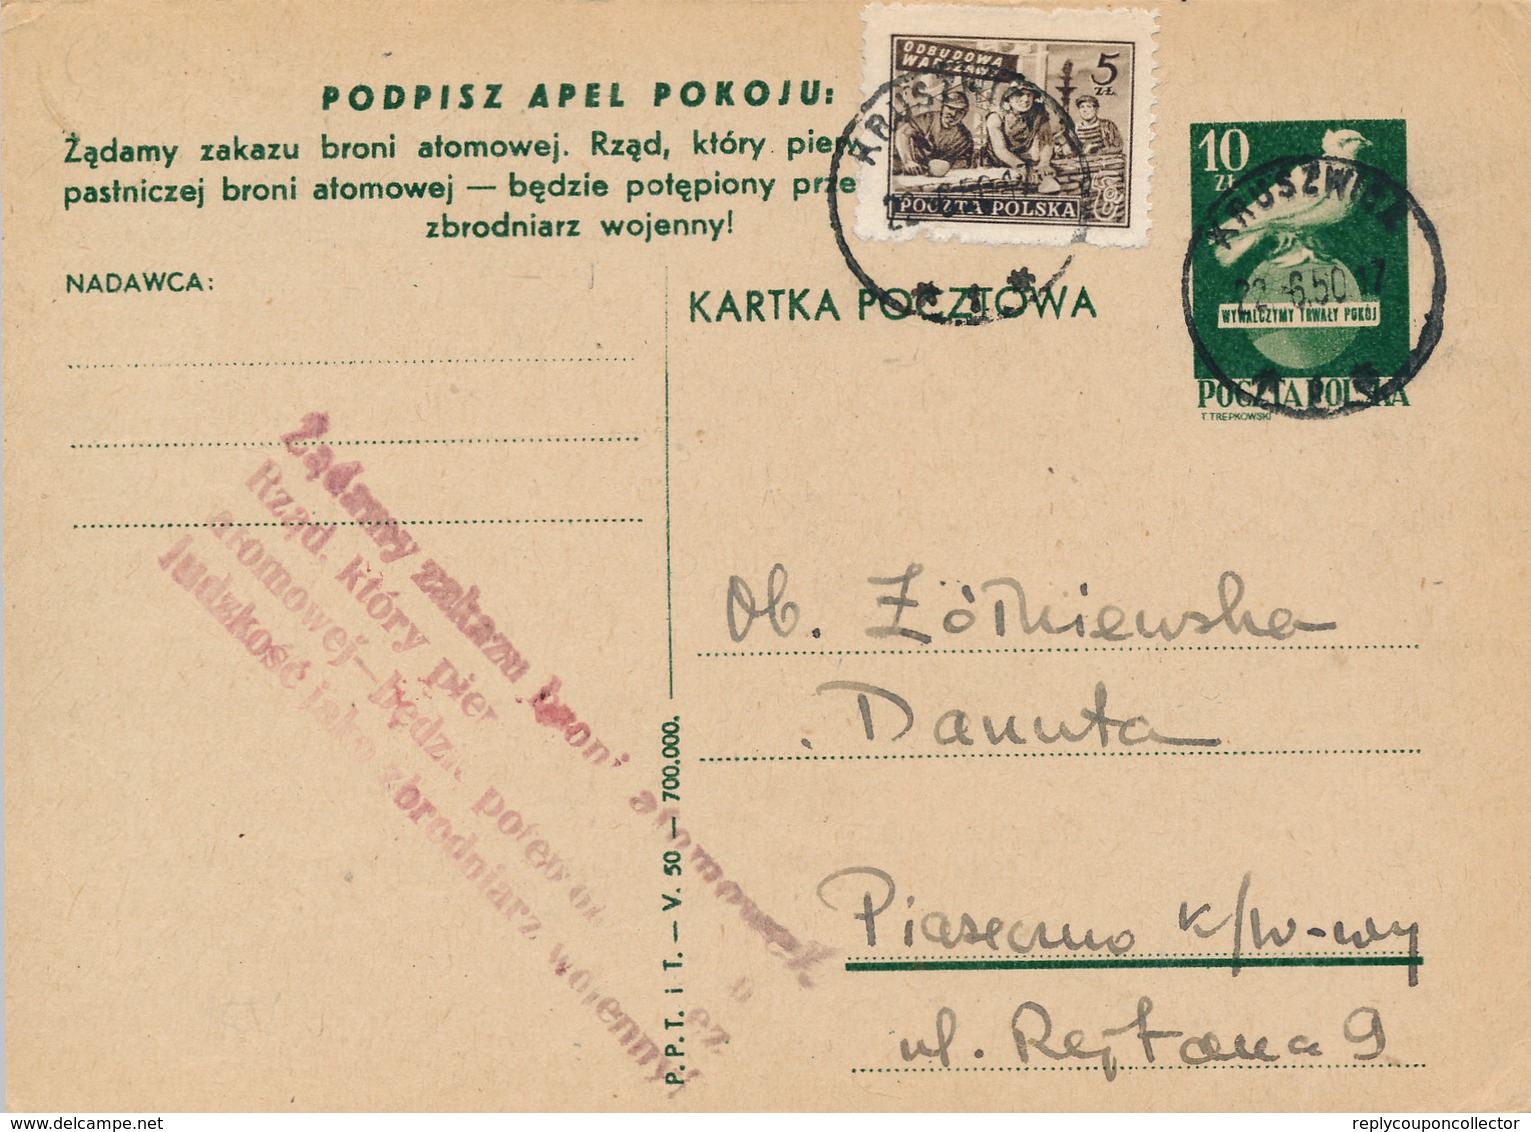 PODPISZ APEL POKOJU:
Żądamy zakazu broni atomowej. Rząd, który pierw
pastniczej broni atomowej — będzie potępiony prze
zbrodniarz wojenny!
NADAWCA:
ODBUDOWA
WARSZAWY
5
ZŁ
POCZTA POLSKA
KRUSZWICA
22
* 1 *
10
ZŁ
KRUSZWICA
22.-6.50 17
WYWALCZYMY TRWAŁY POKÓJ
POCZTA POLSKA
T. TREPKOWSKI
KARTKA POCZTOWA
Żądamy zakazu broni atomowej.
Rząd, który pier
atomowej—będzie
ludzkość jako zbrodniarz wojenny!
P. P. T. i T. — V. 50 — 700.000.
Ob. Żółkiewska
Danuta
Piaseczno k/W-wy
ul. Rejtana 9
delcampe.net
replycouponcollector